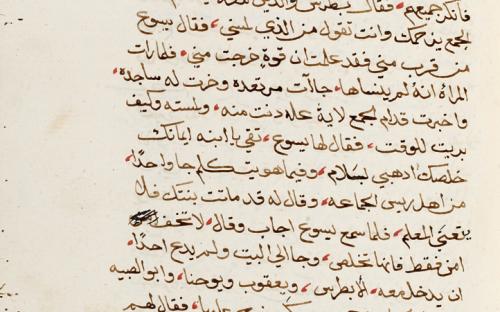 فانكر جميعهم، فقال بطرس والذين معه
الجمع يزحمك وانت تقول من الذي لمسني، فقال يسوع
من قرب مني فقد علمت ان قوة خرجت مني، فلما رات
المراة انه لم ينساها، جاات مرتعده وخرت له ساجدة،
واخبرت قدام الجمع لاية عله دنت منه، ولمسته وكيف
بريت للوقت، فقال لها يسوع، ثقي يا ابنه ايمانك
خلصك اذهبي بسلام، وفيما هو يتكلم جا واحدا،
من اهل ريس الجماعه، وقال له قد ماتت بنتك فلا
يتعني المعلم، فلما سمع يسوع اجاب وقال، لا تخف
امن فقط فانها تخلص، وجا الى البيت ولم يدع احدا،
ان يدخل معه، الا بطرس، ويعقوب ويوحنا، وابو الصبيه
عليها، فقال لهم